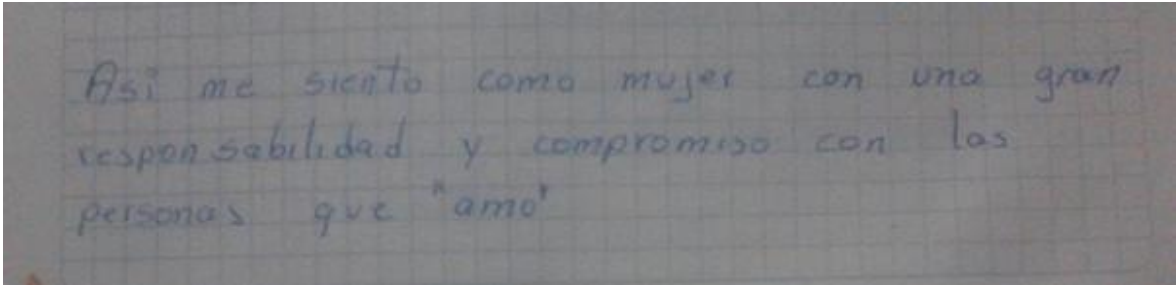 Asi me siento como mujer con una gran
responsabilidad y compromiso con las
personas que "amo"